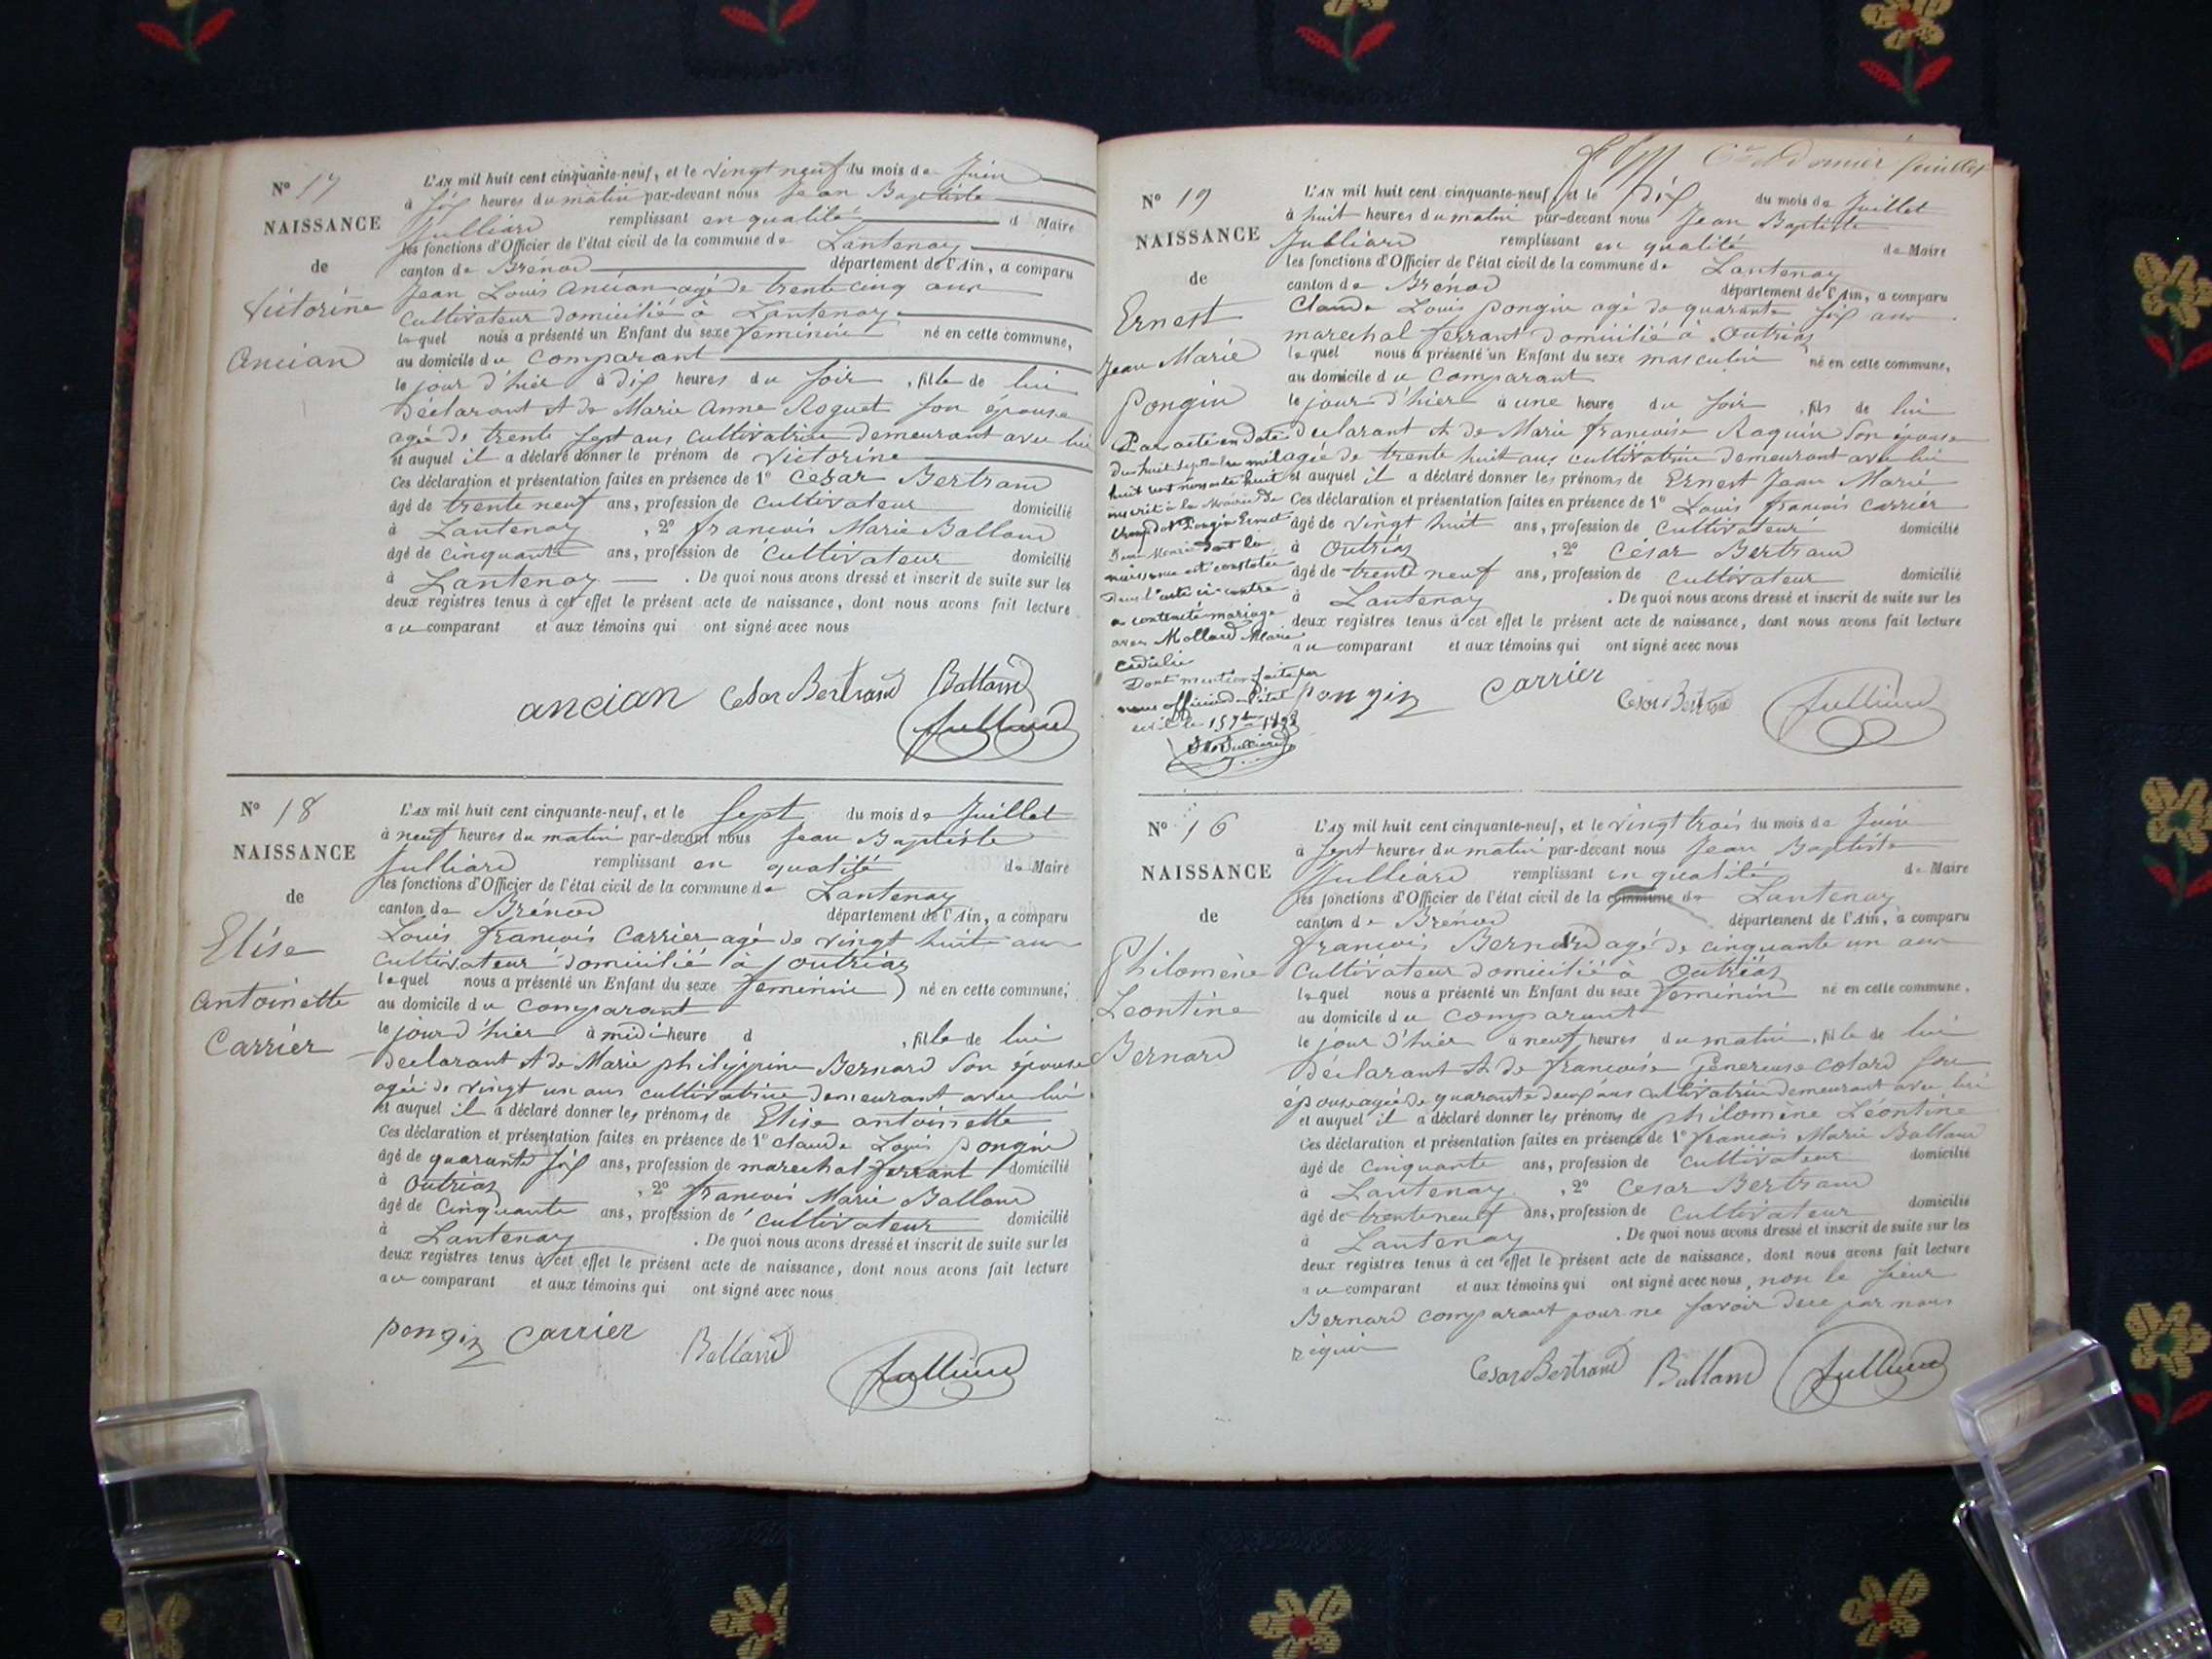 N° 17
NAISSANCE
de
Victorine
Ancian
L'AN mil huit cent cinquante-neuf, et le vingt neuf du mois de Juin
à six heures du matin par-devant nous Jean Baptiste
Julliard remplissant en qualité d Maire
les fonctions d'Officier de l'état civil de la commune de Lantenay
canton de Brénod département de l'Ain, a comparu
Jean Louis Ancian agé de trente cinq ans
Cultivateur domicilié à Lantenay
lequel nous a présenté un Enfant du sexe feminin né en cette commune,
au domicile du comparant
le jour d'hier à dix heures du soir, fille de lui
déclarant et de Marie Anne Roguet son épouse
agée de trente sept ans cultivatrice demeurant avec lui
et auquel il a déclaré donner le prénom de Victorine
Ces déclaration et présentation faites en présence de 1° Cesar Bertrand
âgé de trente neuf ans, profession de cultivateur domicilié
à Lantenay, 2° françois Marie Balland
âgé de cinquante ans, profession de cultivateur domicilié
à Lantenay. De quoi nous avons dressé et inscrit de suite sur les
deux registres tenus à cet effet le présent acte de naissance, dont nous avons fait lecture
au comparant et aux témoins qui ont signé avec nous
ancian Cesar Bertrand Balland
Julliard
N° 18
NAISSANCE
de
Elise
Antoinette
Carrier
L'AN mil huit cent cinquante-neuf, et le sept du mois de Juillet
à neuf heures du matin par-devant nous Jean Baptiste
Julliard remplissant en qualité de Maire
les fonctions d'Officier de l'état civil de la commune de Lantenay
canton de Brénod département de l'Ain, a comparu
Louis françois Carrier agé de vingt huit ans
cultivateur domicilié à Outriaz
lequel nous a présenté un Enfant du sexe feminin né en cette commune,
au domicile du comparant
le jour d'hier à midi heure d , fille de lui
déclarant et de Marie philippine Bernard son épouse
agée de vingt un ans cultivatrice demeurant avec lui
et auquel il a déclaré donner les prénoms de Elise antoinette
Ces déclaration et présentation faites en présence de 1° claude Louis pongin
âgé de quarante six ans, profession de marechal ferrant domicilié
à Outriaz, 2° françois Marie Balland
âgé de cinquante ans, profession de cultivateur domicilié
à Lantenay. De quoi nous avons dressé et inscrit de suite sur les
deux registres tenus à cet effet le présent acte de naissance, dont nous avons fait lecture
au comparant et aux témoins qui ont signé avec nous
pongin Carrier Balland
Julliard
6e et dernier feuillet
N° 19
NAISSANCE
de
Ernest
Jean Marie
Pongin
L'AN mil huit cent cinquante-neuf, et le Dix du mois de Juillet
à huit heures du matin par-devant nous Jean Baptiste
Julliard remplissant en qualité de Maire
les fonctions d'Officier de l'état civil de la commune de Lantenay
canton de Brénod département de l'Ain, a comparu
Claude Louis pongin agé de quarante six ans
marechal ferrant domicilié à Outriaz
lequel nous a présenté un Enfant du sexe masculin né en cette commune,
au domicile du comparant
le jour d'hier à une heure du soir, fils de lui
declarant et de Marie françoise Raquin son épouse
agée de trente huit ans cultivatrice demeurant avec lui
et auquel il a déclaré donner les prénoms de Ernest Jean Marie
Ces déclaration et présentation faites en présence de 1° Louis françois Carrier
âgé de vingt huit ans, profession de cultivateur domicilié
à Outriaz, 2° César Bertrand
âgé de trente neuf ans, profession de cultivateur domicilié
à Lantenay. De quoi nous avons dressé et inscrit de suite sur les
deux registres tenus à cet effet le présent acte de naissance, dont nous avons fait lecture
au comparant et aux témoins qui ont signé avec nous
Par acte en date
du huit Septembre mil
huit cent nonante huit
inscrit à la Mairie de
Champdor Pongin Ernest
Jean Marie dont la
naissance est constatée
dans l'acte ci-contre
a contracté mariage
avec Mollard Marie
Cedulie
Dont mention faite par
nous officier de l'état
civil le 15 7bre 1898
Julliard
pongin Carrier
Cesar Bertrand Julliard
N° 16
NAISSANCE
de
Philomène
Leontine
Bernard
L'AN mil huit cent cinquante-neuf, et le vingt trois du mois de Juin
à sept heures du matin par-devant nous Jean Baptiste
Julliard remplissant en qualité de Maire
les fonctions d'Officier de l'état civil de la commune de Lantenay
canton de Brénod département de l'Ain, a comparu
françois Bernard agé de cinquante un ans
Cultivateur domicilié à Outriaz
lequel nous a présenté un Enfant du sexe feminin né en cette commune,
au domicile du comparant
le jour d'hier à neuf heures du matin, fille de lui
déclarant et de françoise Généreuse Cotard son
épouse agée de quarante deux ans cultivatrice demeurant avec lui
et auquel il a déclaré donner les prénoms de philomène Léontine
Ces déclaration et présentation faites en présence de 1° françois Marie Balland
âgé de cinquante ans, profession de cultivateur domicilié
à Lantenay, 2° Cesar Bertrand
âgé de trente neuf ans, profession de cultivateur domicilié
à Lantenay. De quoi nous avons dressé et inscrit de suite sur les
deux registres tenus à cet effet le présent acte de naissance, dont nous avons fait lecture
au comparant et aux témoins qui ont signé avec nous, non le sieur
Bernard comparant pour ne savoir de ce par nous
requis
Cesar Bertrand Balland Julliard